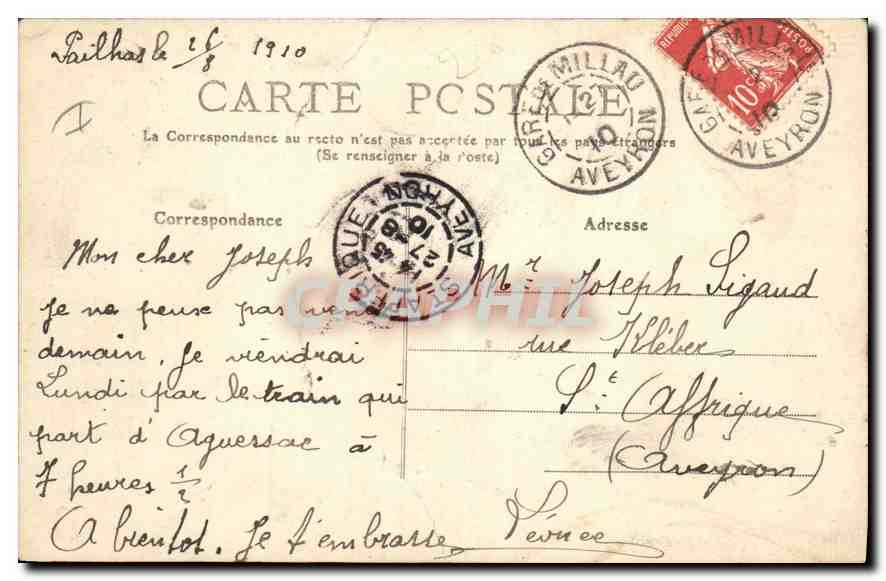 Pailhas le 26/8 1910
CARTE POSTALE
La Correspondance au recto n'est pas acceptée par tous les pays étrangers
(Se renseigner à la Poste)
Correspondance
Mon cher Joseph
Je ne pense pas venir
demain, Je viendrai
Lundi par le train qui
part d'Aguessac à
7 heures 1/2
A bientôt. Je t'embrasse
Adresse
Mr Joseph Sigaud
rue Kléber
St Affrique
(Aveyron)
GARE DE MILLAU
AVEYRON
10
GARE DE MILLAU
AVEYRON
10
ST AFFRIQUE
AVEYRON
27
8
10
10c
POSTES
CPAPHIL